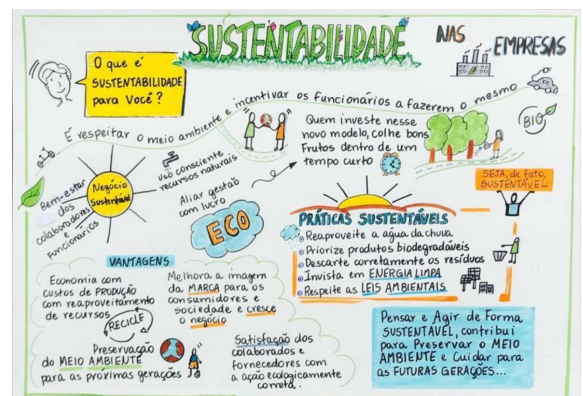 SUSTENTABILIDADE NAS EMPRESAS
O que é
SUSTENTABILIDADE
para Você?
É respeitar o meio ambiente e incentivar os funcionários a fazerem o mesmo
BIO
Negócio
Sustentável
Bem-estar
dos
colaboradores
e
Funcionários
uso consciente
recursos naturais
Aliar gestão
com lucro
ECO
Quem investe nesse
novo modelo, colhe bons
Frutos dentro de um
tempo curto
SEJA, de fato,
SUSTENTÁVEL
PRÁTICAS SUSTENTÁVEIS
Reaproveite a água da chuva
Priorize produtos biodegradáveis
Descarte corretamente os resíduos
Invista em ENERGIA LIMPA
Respeite as LEIS AMBIENTAIS
VANTAGENS
Economia com
custos de PRODUÇÃO
com reaproveitamento
de recursos
RECICLE
Preservação
do MEIO AMBIENTE
para as próximas gerações
Melhora a imagem
da MARCA para os
consumidores e
sociedade e cresce
o negócio
Satisfação dos
colaborados e
fornecedores com
a ação ecologicamente
correta.
Pensar e Agir de Forma
SUSTENTÁVEL, contribui
para Preservar o MEIO
AMBIENTE e Cuidar para
as FUTURAS GERAÇÕES...